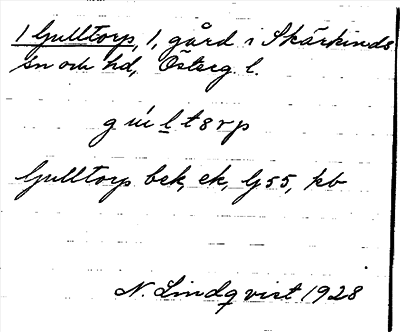 1 Gulltorp, 1, gård i Skärkinds
sn och hd, Österg. l.
gúltɜrp
Gulltorp bsk, ek, Gj 55, kb
N. Lindqvist 1928